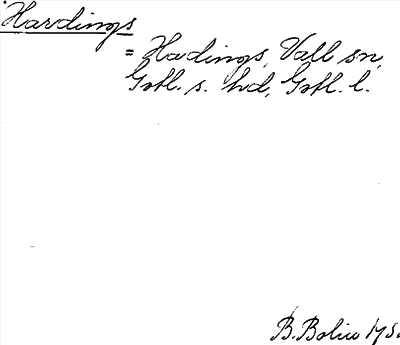 Hardings
= Hadings, Vall sn,
Gotl. s. hd, Gotl. l.
B. Bolin